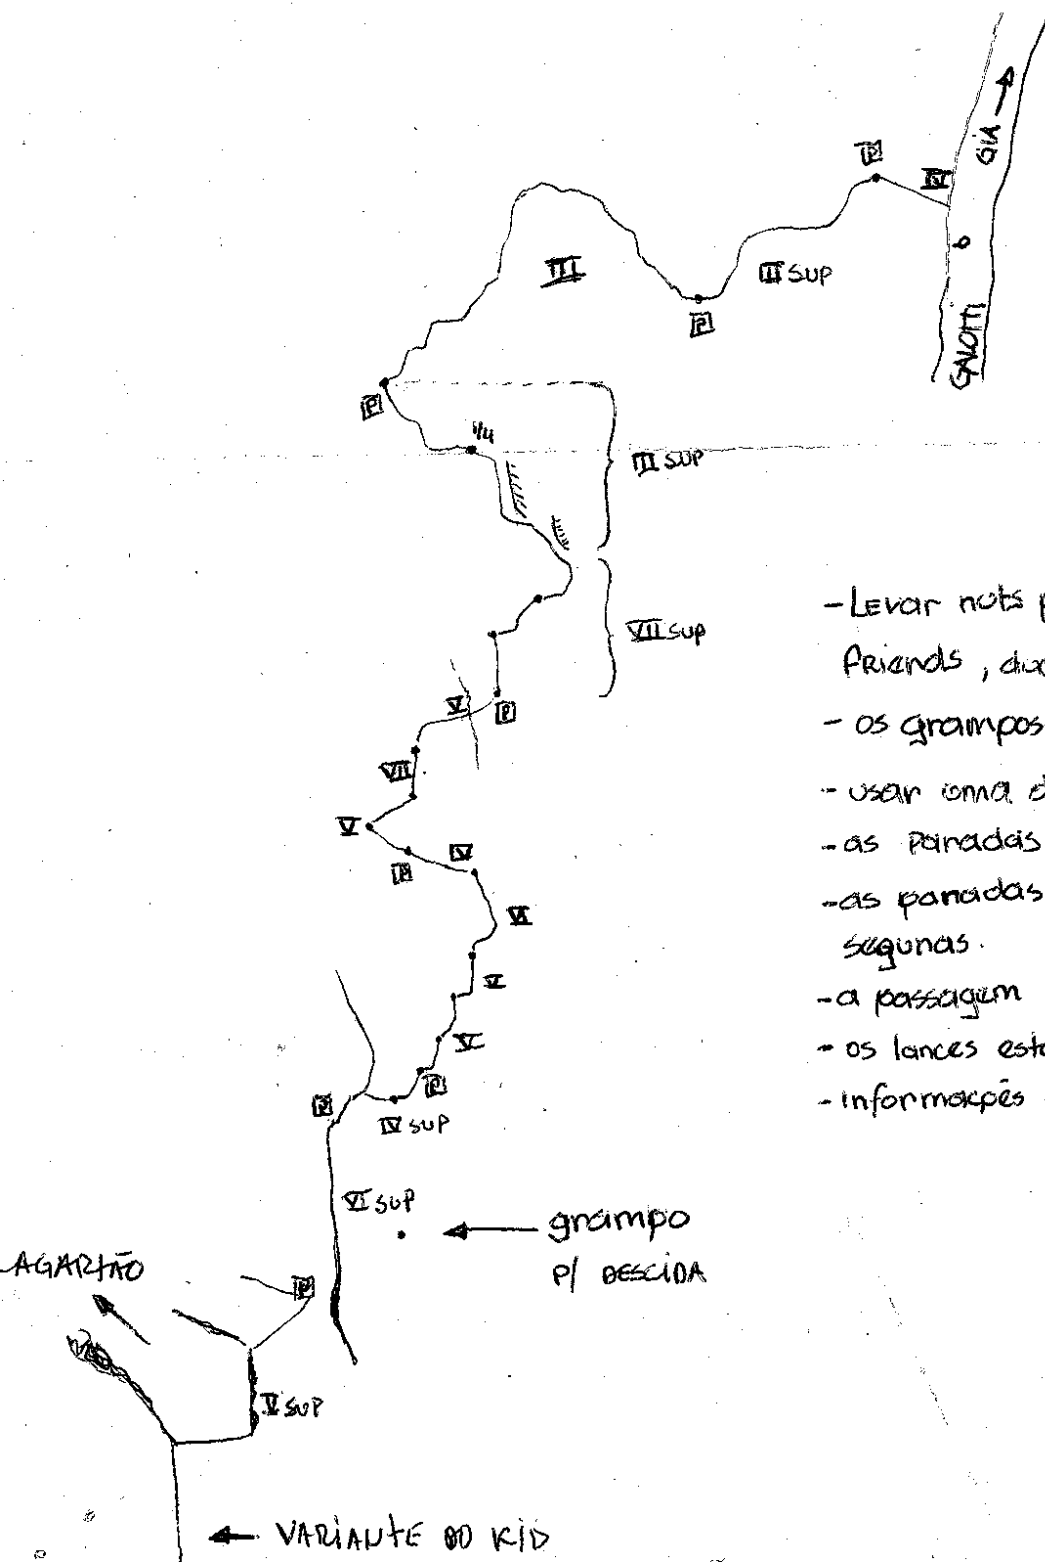 GIA
P
IV
III
III SUP
P
GALOTTI
P
1/4
III SUP
VII SUP
V
P
VII
V
P
IV
VI
V
VI
P
P
IV SUP
VI SUP
grampo
P/ DESCIDA
LAGARTÃO
P
V SUP
VARIANTE DO KID
- Levar nuts
Friends ,
- os grampos
- usar uma
- as Paradas
- as paradas
seguras.
- a passagem
- os lances
- informações